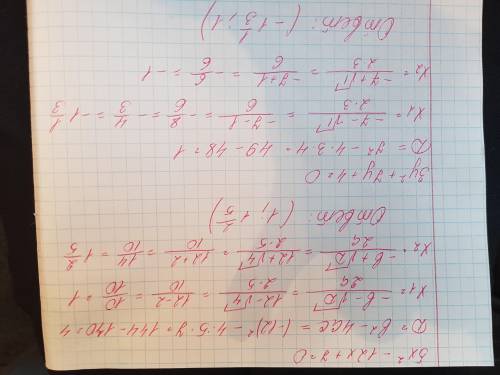 5x² - 12x + 7 = 0
D = b² - 4ac = (-12)² - 4·5·7 = 144 - 140 = 4
x₁ = (-b - √D)/2a = (12 - √4)/(2·5) = (12 - 2)/10 = 10/10 = 1
x₂ = (-b + √D)/2a = (12 + √4)/(2·5) = (12 + 2)/10 = 14/10 = 1 2/5
Ответ: (1; 1 2/5)
3y² + 7y + 4 = 0
D = 7² - 4·3·4 = 49 - 48 = 1
x₁ = (-7 - √1)/(2·3) = (-7 - 1)/6 = -8/6 = -4/3 = -1 1/3
x₂ = (-7 + √1)/(2·3) = (-7 + 1)/6 = -6/6 = -1
Ответ: (-1 1/3; 1)